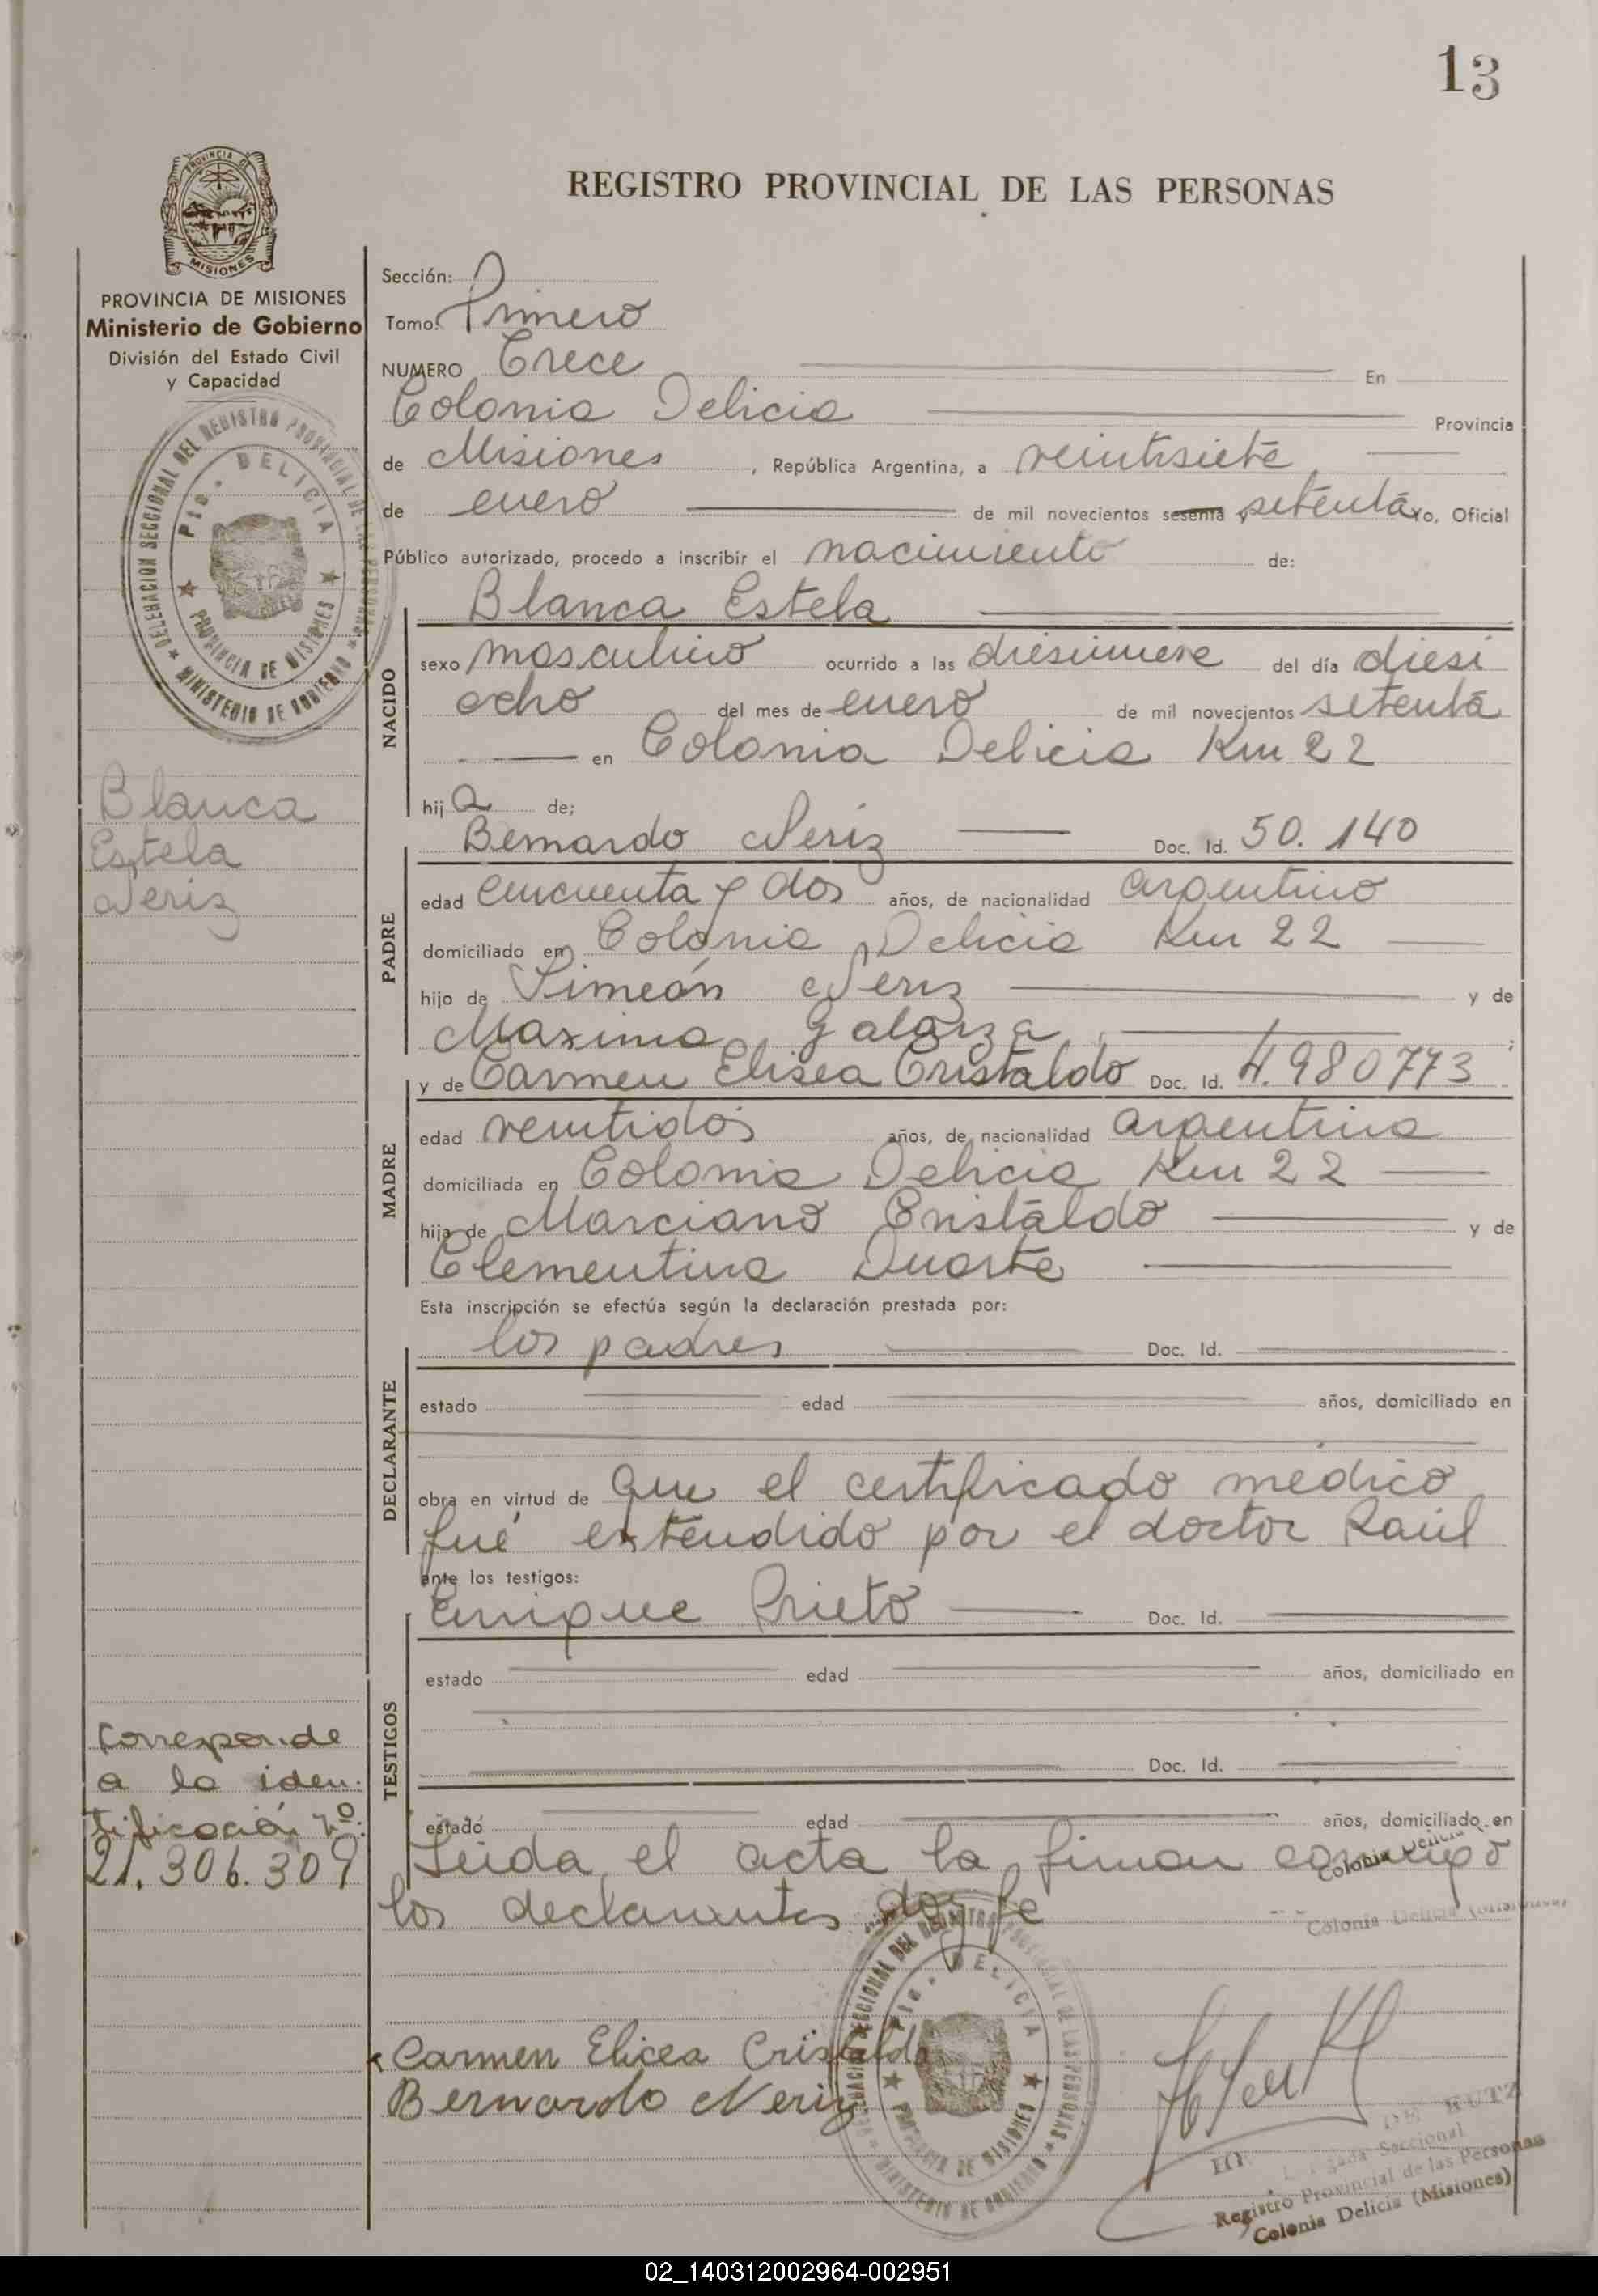 13
REGISTRO PROVINCIAL DE LAS PERSONAS
PROVINCIA DE
MISIONES
PROVINCIA DE MISIONES
Ministerio de Gobierno
División del Estado Civil
y Capacidad
DELEGACION SECCIONAL DEL REGISTRO PROVINCIAL DE LAS PERSONAS
Pto. DELICIA
PROVINCIA DE MISIONES
MINISTERIO DE GOBIERNO
Blanca
Estela
Neriz
Corresponde
a la iden-
tificación Nº
21.306.309
Sección:
Tomo: Primero
NUMERO Trece En
Colonia Delicia Provincia
de Misiones, República Argentina, a veintisiete
de enero de mil novecientos sesenta y setenta yo, Oficial
Público autorizado, procedo a inscribir el nacimiento de:
Blanca Estela
NACIDO
sexo masculino ocurrido a las diesinueve del día diesi
ocho del mes de enero de mil novecientos setenta
en Colonia Delicia Km 22
hija de;
Bernardo Neriz Doc. Id. 50.140
PADRE
edad cincuenta y dos años, de nacionalidad argentino
domiciliado en Colonia Delicia Km 22
hijo de Simeón Neriz y de
Maxima Galarza;
y de Carmen Elisea Cristaldo Doc. Id. 4.980773
MADRE
edad veintidos años, de nacionalidad argentina
domiciliada en Colonia Delicia Km 22
hija de Marciano Cristaldo y de
Clementina Duarte
Esta inscripción se efectúa según la declaración prestada por:
los padres Doc. Id.
DECLARANTE
estado edad años, domiciliado en
obra en virtud de que el certificado médico
fué extendido por el doctor Raúl
ante los testigos:
Enrique Prieto Doc. Id.
TESTIGOS
estado edad años, domiciliado en
Doc. Id.
estado edad años, domiciliado en
Leida el acta la firman conmigo
los declarantes doy fe
Colonia Delicia
Colonia Delicia (Misiones)
Carmen Elicea Cristaldo
Bernardo Neriz
DELEGACION SECCIONAL DEL REGISTRO PROVINCIAL DE LAS PERSONAS
Pto. DELICIA
PROVINCIA DE MISIONES
MINISTERIO DE GOBIERNO
DE BUTZ
Seccional
Registro Provincial de las Personas
Colonia Delicia (Misiones)
02_140312002964-002951